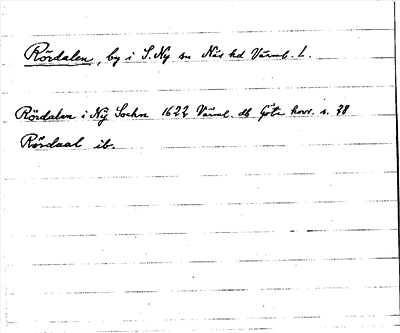 Rördalen, by i S. Ny sn Näs hd Värml. L.
Rördalen i Nÿ Sochn 1622 Värml. db Göta hovr. s. 28
Rördaal ib.